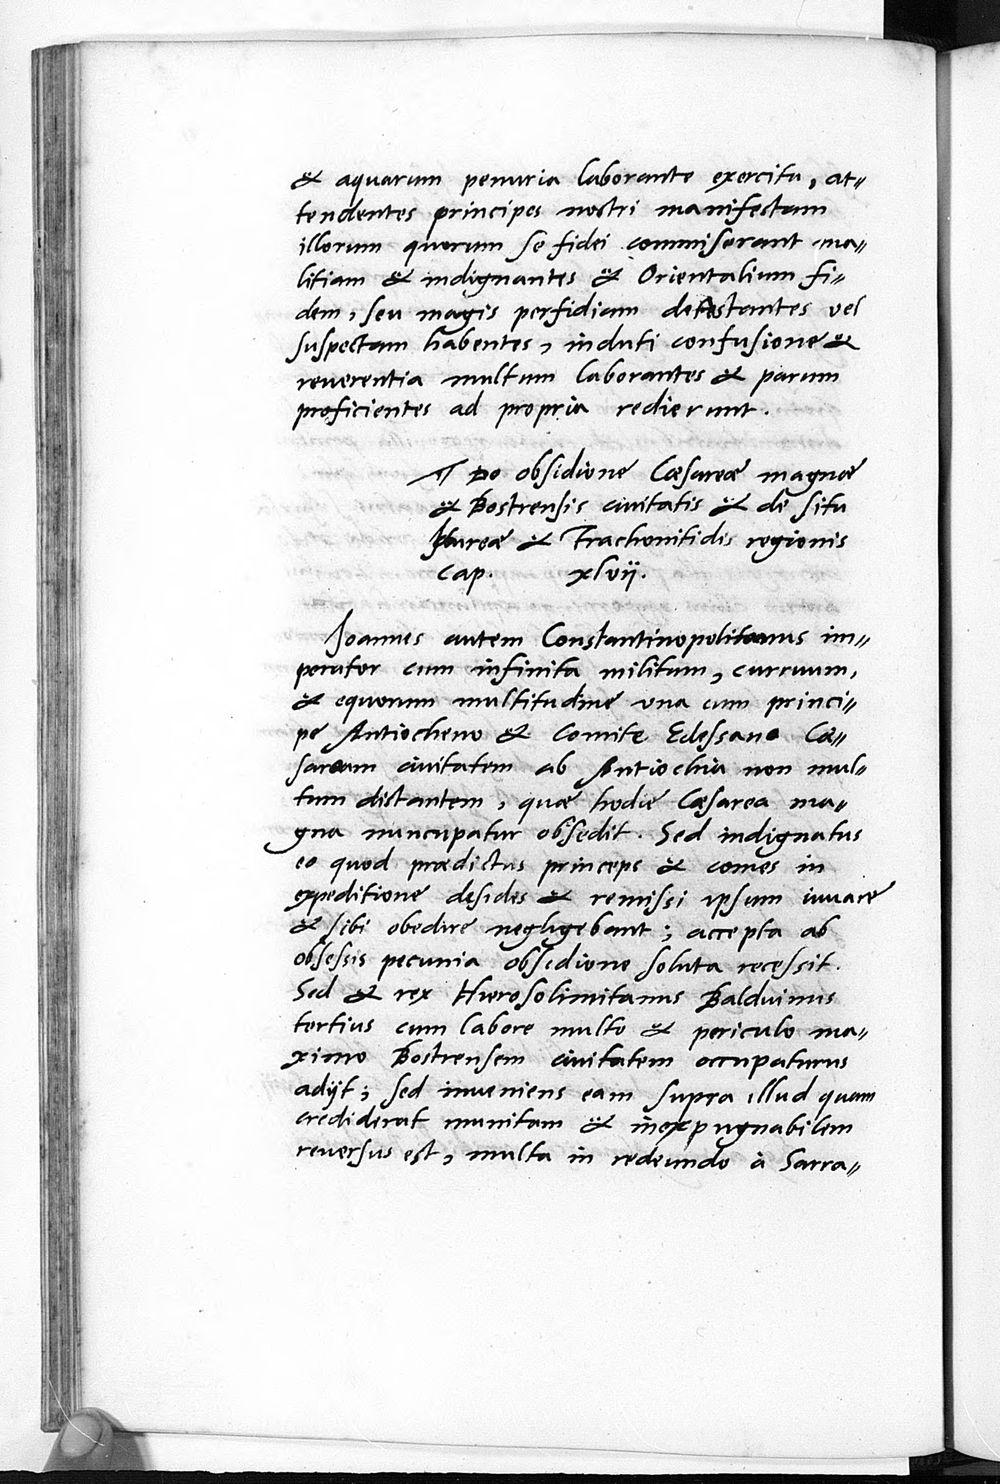 & aquarum penuria laborante exercitu, at„
tendentes principes nostri manifestam
illorum quorum se fidei commiserant ma„
litiam & indignantes & Orientalium fi„
dem, seu magis perfidiam detestantes vel
suspectam habentes, induti confusione &
reuerentia multum laborantes & parum
proficientes ad propria redierunt.
¶ De obsidione Cæsareæ magnæ
& Bostrensis ciuitatis & de situ
Itureæ & Trachonitidis regionis
Cap. xlvij.
Joannes autem Constantinopolitanus im„
perator cum infinita militum, curruum,
& equorum multitudine vna cum princi„
pe Antiocheno & Comite Edessano Cæ„
saream ciuitatem ab Antiochia non mul„
tum distantem, quæ hodie Cæsarea ma„
gna nuncupatur obsedit. Sed indignatus
eo quod prædictus princeps & comes in
expeditione desides & remissi ipsum iuuare
& sibi obedire negligebant; accepta ab
obsessis pecunia obsidione soluta recessit.
Sed & rex Hierosolimitanus Balduinus
tertius cum labore multo & periculo ma„
ximo Bostrensem ciuitatem occupaturus
adijt; sed inueniens eam supra illud quam
crediderat munitam & inexpugnabilem
reuersus est, multa in redeundo à Sarra„